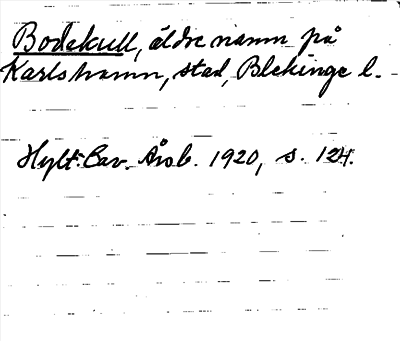 Bodekull, äldre namn på
Karlshamn, stad, Blekinge l.
Hylt. Cav. Årsb. 1920, s. 124.